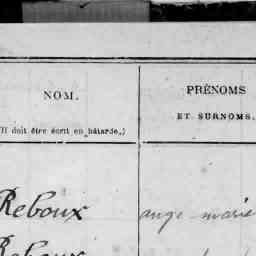 NOM.
PRÉNOMS
ET SURNOMS.
Il doit être écrit en bâtarde.)
Reboux ange marie
Reboux